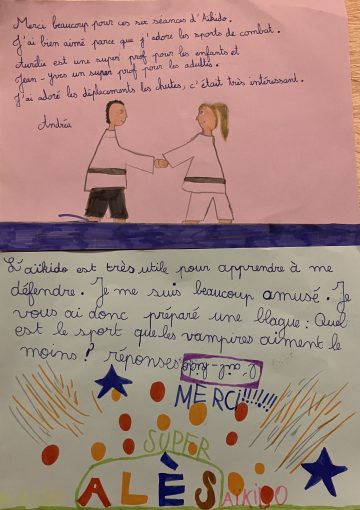 Merci beaucoup pour ces six séances d'Aïkido.
J'ai bien aimé parce que j'adore les sports de combat.
Aurélie est une super prof pour les enfants et
Jean-Yves un super prof pour les adultes.
J'ai adoré les déplacements les chutes, c'était très intéressant.
Andréa
L'aïkido est très utile pour apprendre à me
défendre. Je me suis beaucoup amusé. Je
vous ai donc préparé une blague: Quel
est le sport que les vampires aiment le
moins? réponse: l'ail-kido
MERCI!!!!!!!
SUPER
ALÈS AIKIDO